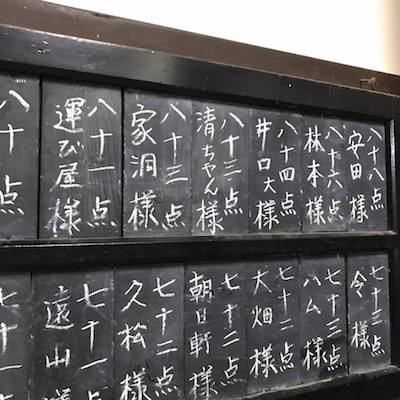 八十八点
安田様
八十六点
林本様
八十四点
井口大様
八十三点
清ちゃん様
八十三点
家洞様
八十一点
運び屋様
八十点
七十三点
令様
七十三点
ハム様
七十二点
大畑様
七十二点
朝日軒様
七十二点
久松様
七十一点
遠山様